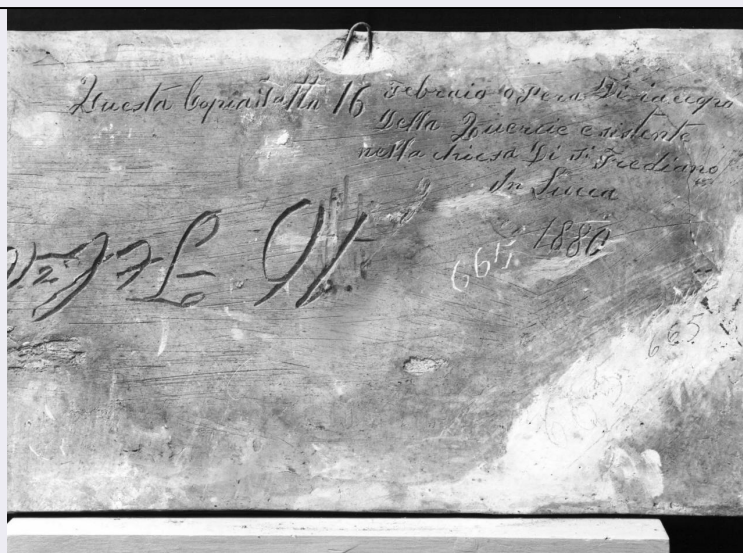 Questa Copia fatta 16 Febraio opera Di iacopo
Della Quercie esistente
nella chiesa Di S. Frediano
In Lucca
1880
665.
665